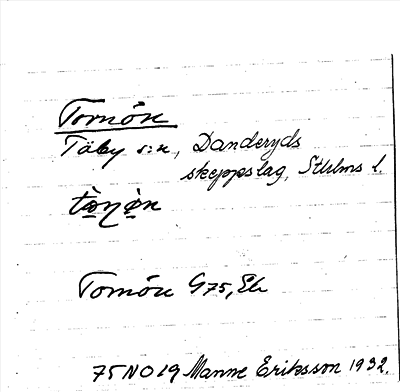 Tornön
Täby s:n, Danderyds
skeppslag, Sthlms l.
Tornön G75, Ek
75 NO 19 Manne Eriksson 1932.